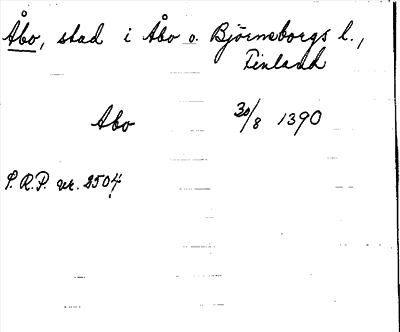 Åbo, stad i Åbo o. Björneborgs l.,
Finland
Abo 30/8 1390
S.R.P. nr. 2504